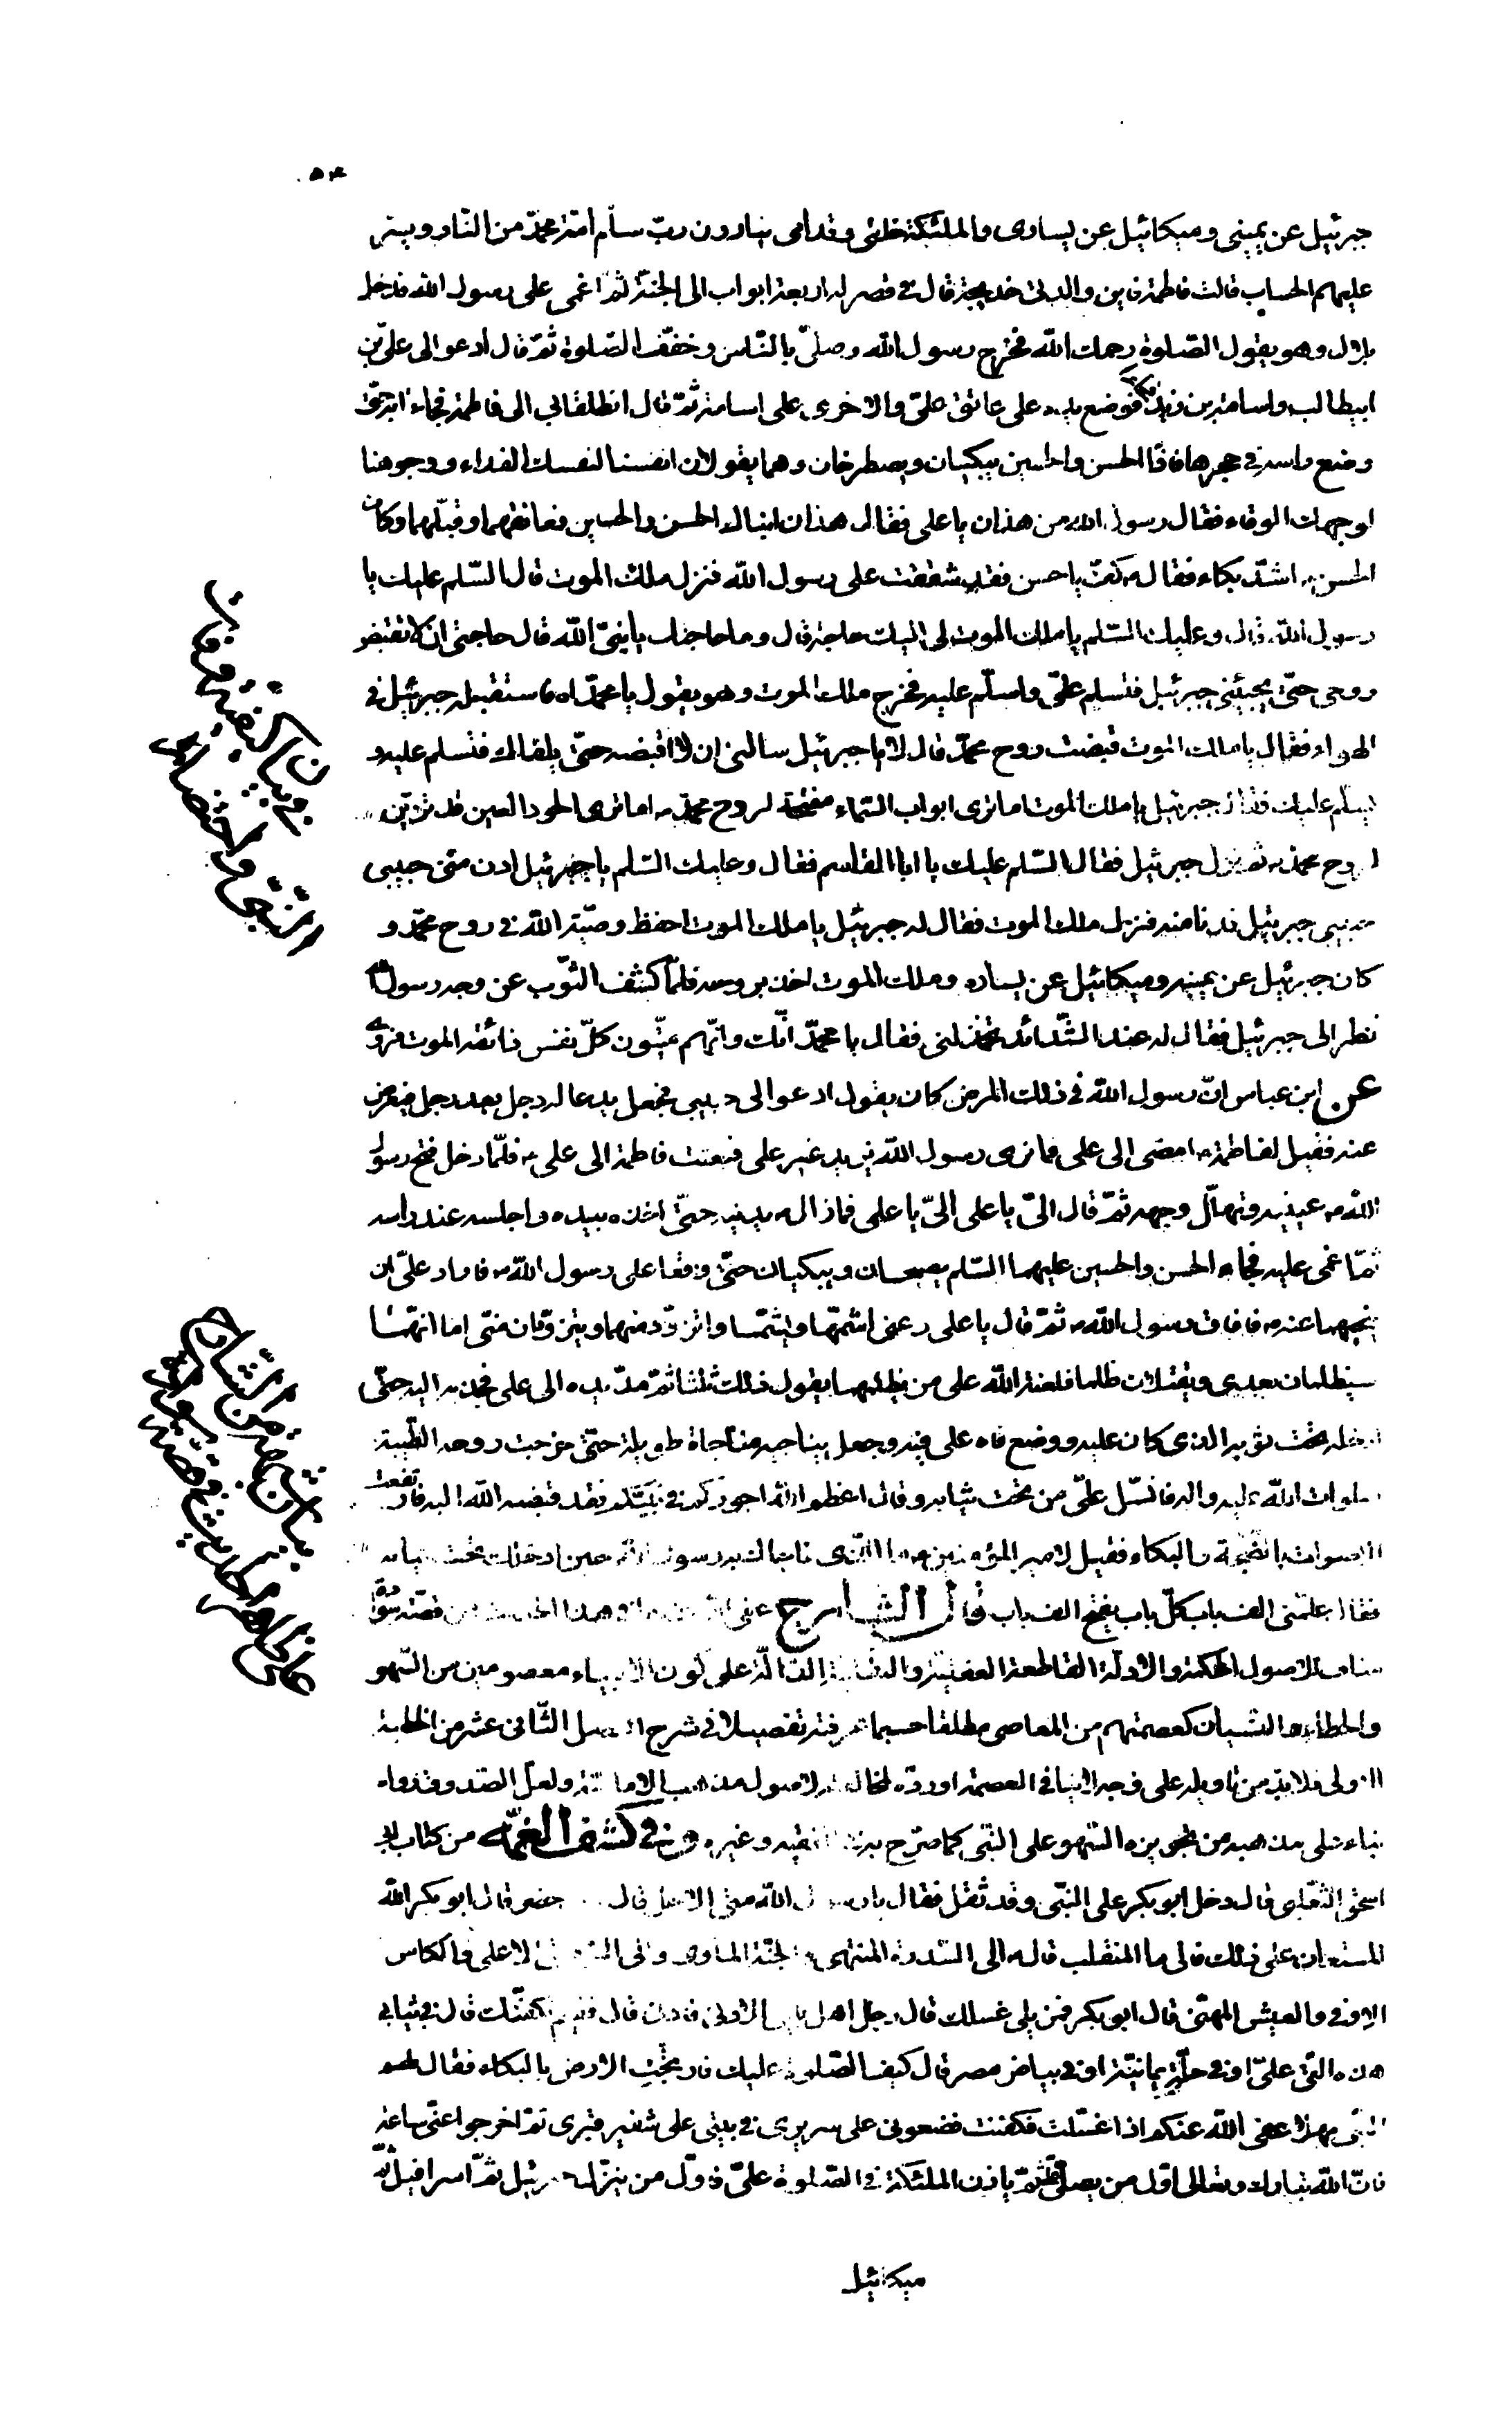 جبرئيل عن يميني وميكائيل عن يسارى والملئكة خلفى وقدامى ينادون ربّ سلّم امّة محمّد من النّار ويسّر
عليهم الحساب قالت فاطمة فاين والدتى خديجة قال فى قصر له اربعة ابواب الى الجنّة ثمّ اغمى على رسول الله فدخل
بلال وهو يقول الصّلوة رحمك الله فخرج رسول الله وصلّى بالنّاس وخفّف الصّلوة ثمّ قال ادعوا لى علىّ بن
ابيطالب واسامة بن زيد فوضع يده على عاتق علىّ والاخرى على اسامة ثمّ قال انطلقا بى الى فاطمة فجاءا به حتّى
وضع راسه فى حجرها فاذا الحسن والحسين يبكيان ويصطرخان وهما يقولان انفسنا لنفسك الفداء ووجوهنا
لوجهك الوقاء فقال رسول الله من هذان يا على فقال هذان ابناك الحسن والحسين فعانقهما وقبّلهما وكان
الحسن اشدّ بكاء فقال كفّ يا حسن فقد شققت على رسول الله فنزل ملك الموت قال السّلم عليك يا
رسول الله قال وعليك السّلم يا ملك الموت لى اليك حاجة قال وما حاجتك يا نبىّ الله قال حاجتى ان لا تقبض
روحى حتّى يجيئنى جبرئيل فتسلم علىّ واسلّم عليه فخرج ملك الموت وهو يقول يا محمّداه فاستقبله جبرئيل فى
الهواء فقال يا ملك الموت قبضت روح محمّد قال لا يا جبرئيل سالنى ان لا اقبضه حتّى يلقاك فتسلم عليه و
يسلّم عليك فقال جبرئيل يا ملك الموت اما ترى ابواب السّماء مفتّحة لروح محمّد اما ترى الحور العين قد تزيّن
لروح محمّد ثم نزل جبرئيل فقال السّلم عليك يا ابا القاسم فقال وعليك السّلم يا جبرئيل ادن منّى حبيبى
جبرئيل فدنا منه فنزل ملك الموت فقال له جبرئيل يا ملك الموت احفظ وصيّة الله فى روح محمّد و
كان جبرئيل عن يمينه وميكائيل عن يساره وملك الموت اخذ بروحه فلمّا كشف الثّوب عن وجه رسول الله
نظر الى جبرئيل فقال له عند الشّدائد تخذلنى فقال يا محمّد انّك ميّت وانّهم ميّتون كلّ نفس ذائقة الموت فروى
عن ابن عباس انّ رسول الله فى ذلك المرض كان يقول ادعوا لى حبيبى فجعل يدعا له رجل بعد رجل فيعرض
عنه فقيل لفاطمة امضى الى على فما نرى رسول الله يريد غير على فبعثت فاطمة الى على فلمّا دخل فتح رسول
الله عينيه وتهلّل وجهه ثمّ قال الىّ يا على الىّ يا على فما زال يدنيه حتّى اخذه بيده واجلسه عند راسه
ثمّ اغمى عليه فجاء الحسن والحسين عليهما السّلم يصيحان ويبكيان حتّى وقعا على رسول الله فاراد علىّ ان
ينحيهما عنه فافاق رسول الله ثمّ قال يا على دعنى اشمّهما ويشمّانى واتزوّد منهما ويتزوّدان منّى اما انّهما
سيظلمان بعدى ويقتلان ظلما فلعنة الله على من يظلمهما يقول ذلك ثلثا ثمّ مدّ يده الى على فجذبه اليه حتّى
ادخله تحت ثوبه الذى كان عليه ووضع فاه على فيه وجعل يناجيه مناجاة طويلة حتّى خرجت روحه الطّيبة
صلوات الله عليه واله فانسلّ علىّ من تحت ثيابه وقال اعظم الله اجوركم فى نبيّكم فقد قبضه الله اليه فارتفعت
الاصوات بالضّجّة والبكاء فقيل لامير المؤمنين ما الذى ناجاك به رسول الله حين ادخلك تحت ثيابه
فقال علّمنى الف باب كلّ باب يفتح الف باب قال الشارح عفى الله عنه هذا الحديث من قصّة سواده
مناف للاصول المحكمة والادلّة القاطعة العقليّة والنقليّة الدّالّة على كون الانبياء معصومين من السّهو
والخطاء والنسيان كعصمتهم من المعاصى مطلقا حسبما عرفته تفصيلا فى شرح الفصل الثّانى عشر من الخطبة
الاولى فلا بدّ من تاويله على وجه لا ينافى العصمة او ردّه لمخالفته لاصول مذهب الاماميّة ولعلّ الصدوق رواه
بناء على مذهبه من تجويزه السّهو على النّبى كما صرّح به فى الفقيه وغيره وفى كشف الغمّه من كتاب ابى
اسحق الثّعلبى قال دخل ابو بكر على النّبى وقد ثقل فقال يا رسول الله متى الاجل قال قد حضر قال ابو بكر الله
المستعان على ذلك فالى ما المنقلب قال الى السّدرة المنتهى والجنّة الماوى والى الرّفيق الاعلى والكاس
الاوفى والعيش المهنّى قال ابو بكر فمن يلى غسلك قال رجل اهل بيتى الادنى فادنى قال ففيم نكفّنك قال فى ثيابى
هذه الّتى علىّ او فى حلّة يمانيّة او فى بياض مصر قال كيف الصّلوة عليك فارتجّت الارض بالبكاء فقال لهم
النّبى مهلا عفى الله عنكم اذا غسّلت وكفّنت فضعونى على سريرى فى بيتى على شفير قبرى ثمّ اخرجوا عنّى ساعة
فانّ الله تبارك وتعالى اوّل من يصلّى علىّ ثمّ ياذن الملئكة فى الصّلوة علىّ فاوّل من ينزل جبرئيل ثمّ اسرافيل ثمّ
ميكائيل